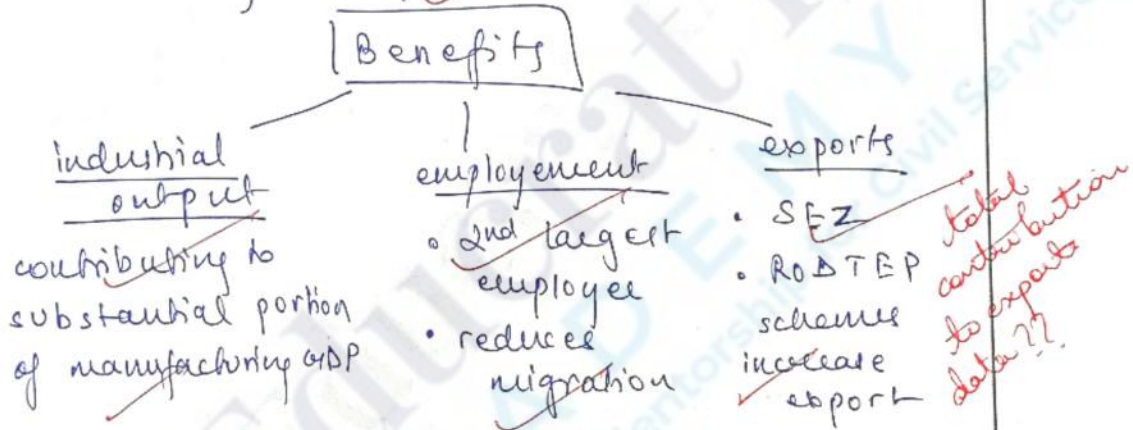 Benefits
industrial
output
contributing to
substantial portion
of manufacturing GDP
employement
• 2nd largest
employee
• reduces
migration
exports
• SEZ
• RODTEP
schemes
increase
export
total
contribution
to exports
data ??
Educrat
ADEMY
entorship
Civil Service